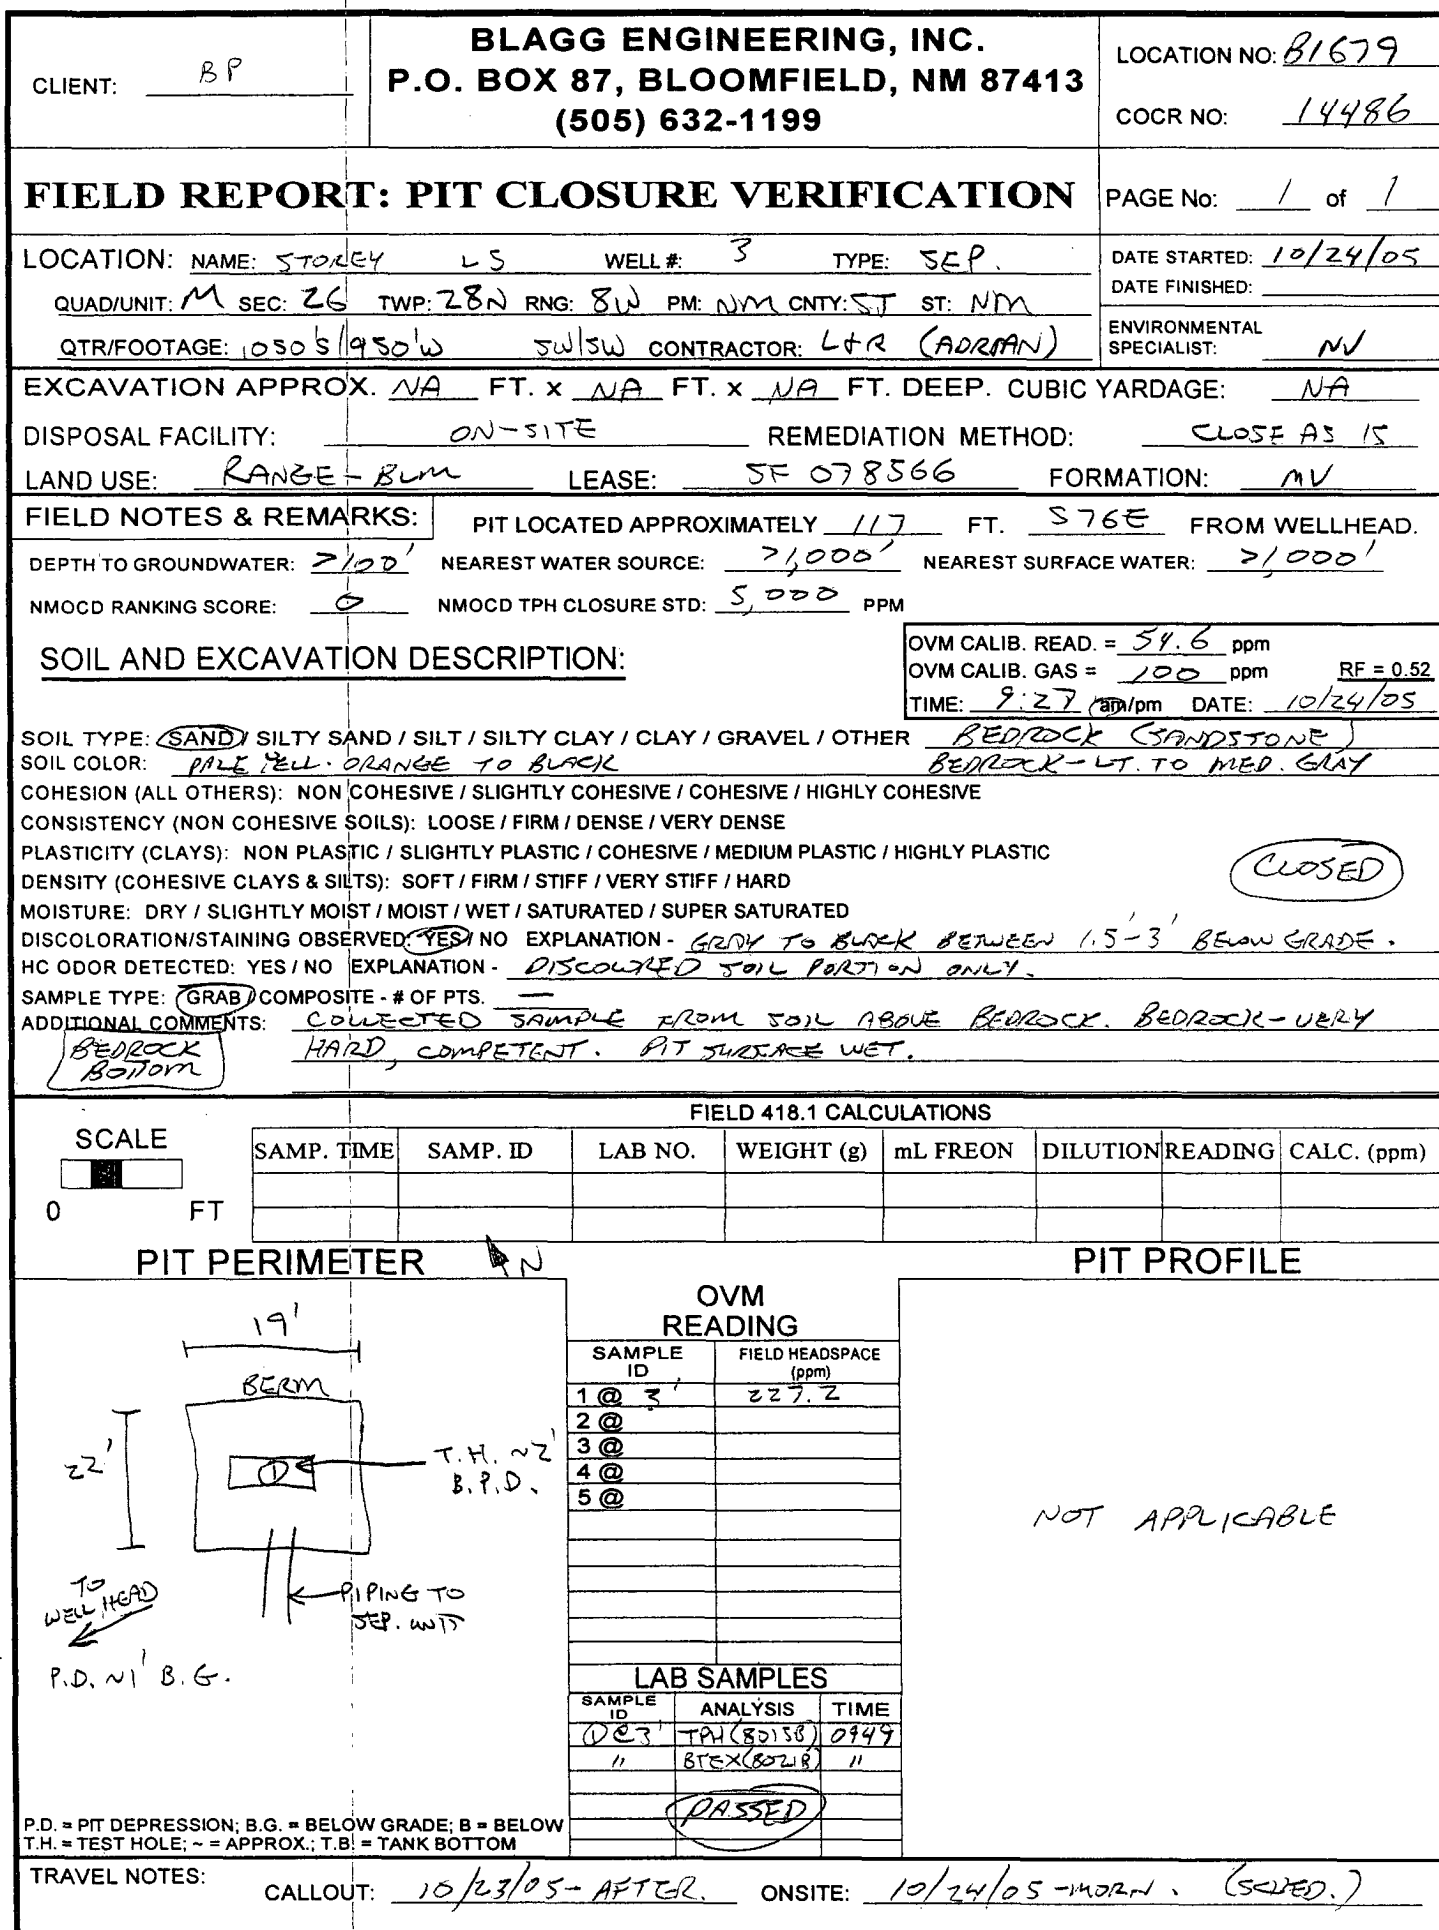 CLIENT: BP
BLAGG ENGINEERING, INC.
P.O. BOX 87, BLOOMFIELD, NM 87413
(505) 632-1199
LOCATION NO: B1679
COCR NO: 14486
FIELD REPORT: PIT CLOSURE VERIFICATION
PAGE No: 1 of 1
LOCATION: NAME: STOREY LS WELL #: 3 TYPE: SEP.
QUAD/UNIT: M SEC: 26 TWP: 28N RNG: 8W PM: NM CNTY: SJ ST: NM
QTR/FOOTAGE: 1050'S/950'W SW/SW CONTRACTOR: L+R (ADRIAN)
DATE STARTED: 10/24/05
DATE FINISHED:
ENVIRONMENTAL
SPECIALIST: NV
EXCAVATION APPROX. NA FT. x NA FT. x NA FT. DEEP. CUBIC YARDAGE: NA
DISPOSAL FACILITY: ON-SITE REMEDIATION METHOD: CLOSE AS IS
LAND USE: RANGE - BLM LEASE: SF 078566 FORMATION: MV
FIELD NOTES & REMARKS: PIT LOCATED APPROXIMATELY 117 FT. S76E FROM WELLHEAD.
DEPTH TO GROUNDWATER: >100' NEAREST WATER SOURCE: >1,000' NEAREST SURFACE WATER: >1,000'
NMOCD RANKING SCORE: 0 NMOCD TPH CLOSURE STD: 5,000 PPM
SOIL AND EXCAVATION DESCRIPTION:
OVM CALIB. READ. = 54.6 ppm
OVM CALIB. GAS = 100 ppm RF = 0.52
TIME: 9:27 am/pm DATE: 10/24/05
SOIL TYPE: SAND / SILTY SAND / SILT / SILTY CLAY / CLAY / GRAVEL / OTHER BEDROCK (SANDSTONE)
SOIL COLOR: PALE YELL. ORANGE TO BLACK BEDROCK - LT. TO MED. GRAY
COHESION (ALL OTHERS): NON COHESIVE / SLIGHTLY COHESIVE / COHESIVE / HIGHLY COHESIVE
CONSISTENCY (NON COHESIVE SOILS): LOOSE / FIRM / DENSE / VERY DENSE
PLASTICITY (CLAYS): NON PLASTIC / SLIGHTLY PLASTIC / COHESIVE / MEDIUM PLASTIC / HIGHLY PLASTIC
DENSITY (COHESIVE CLAYS & SILTS): SOFT / FIRM / STIFF / VERY STIFF / HARD
CLOSED
MOISTURE: DRY / SLIGHTLY MOIST / MOIST / WET / SATURATED / SUPER SATURATED
DISCOLORATION/STAINING OBSERVED: YES / NO EXPLANATION - GRAY TO BLACK BETWEEN 1.5'-3' BELOW GRADE.
HC ODOR DETECTED: YES / NO EXPLANATION - DISCOLORED SOIL PORTION ONLY.
SAMPLE TYPE: GRAB / COMPOSITE - # OF PTS. —
ADDITIONAL COMMENTS: COLLECTED SAMPLE FROM SOIL ABOVE BEDROCK. BEDROCK - VERY
HARD, COMPETENT. PIT SURFACE WET.
BEDROCK
BOTTOM
FIELD 418.1 CALCULATIONS
SCALE
0 FT
SAMP. TIME SAMP. ID LAB NO. WEIGHT (g) mL FREON DILUTION READING CALC. (ppm)
PIT PERIMETER
N
PIT PROFILE
19'
BERM
22'
1
T.H. ~2'
B.P.D.
TO
WELL HEAD
PIPING TO
SEP. UNIT
P.D. ~1' B.G.
OVM
READING
SAMPLE
ID
FIELD HEADSPACE
(ppm)
1 @ 3' 227.2
2 @
3 @
4 @
5 @
NOT APPLICABLE
LAB SAMPLES
SAMPLE
ID
ANALYSIS TIME
1@3' TPH(8015B) 0949
" BTEX(8021B) "
PASSED
P.D. = PIT DEPRESSION; B.G. = BELOW GRADE; B = BELOW
T.H. = TEST HOLE; ~ = APPROX.; T.B. = TANK BOTTOM
TRAVEL NOTES:
CALLOUT: 10/23/05 - AFTER. ONSITE: 10/24/05 - MORN. (SCHED.)